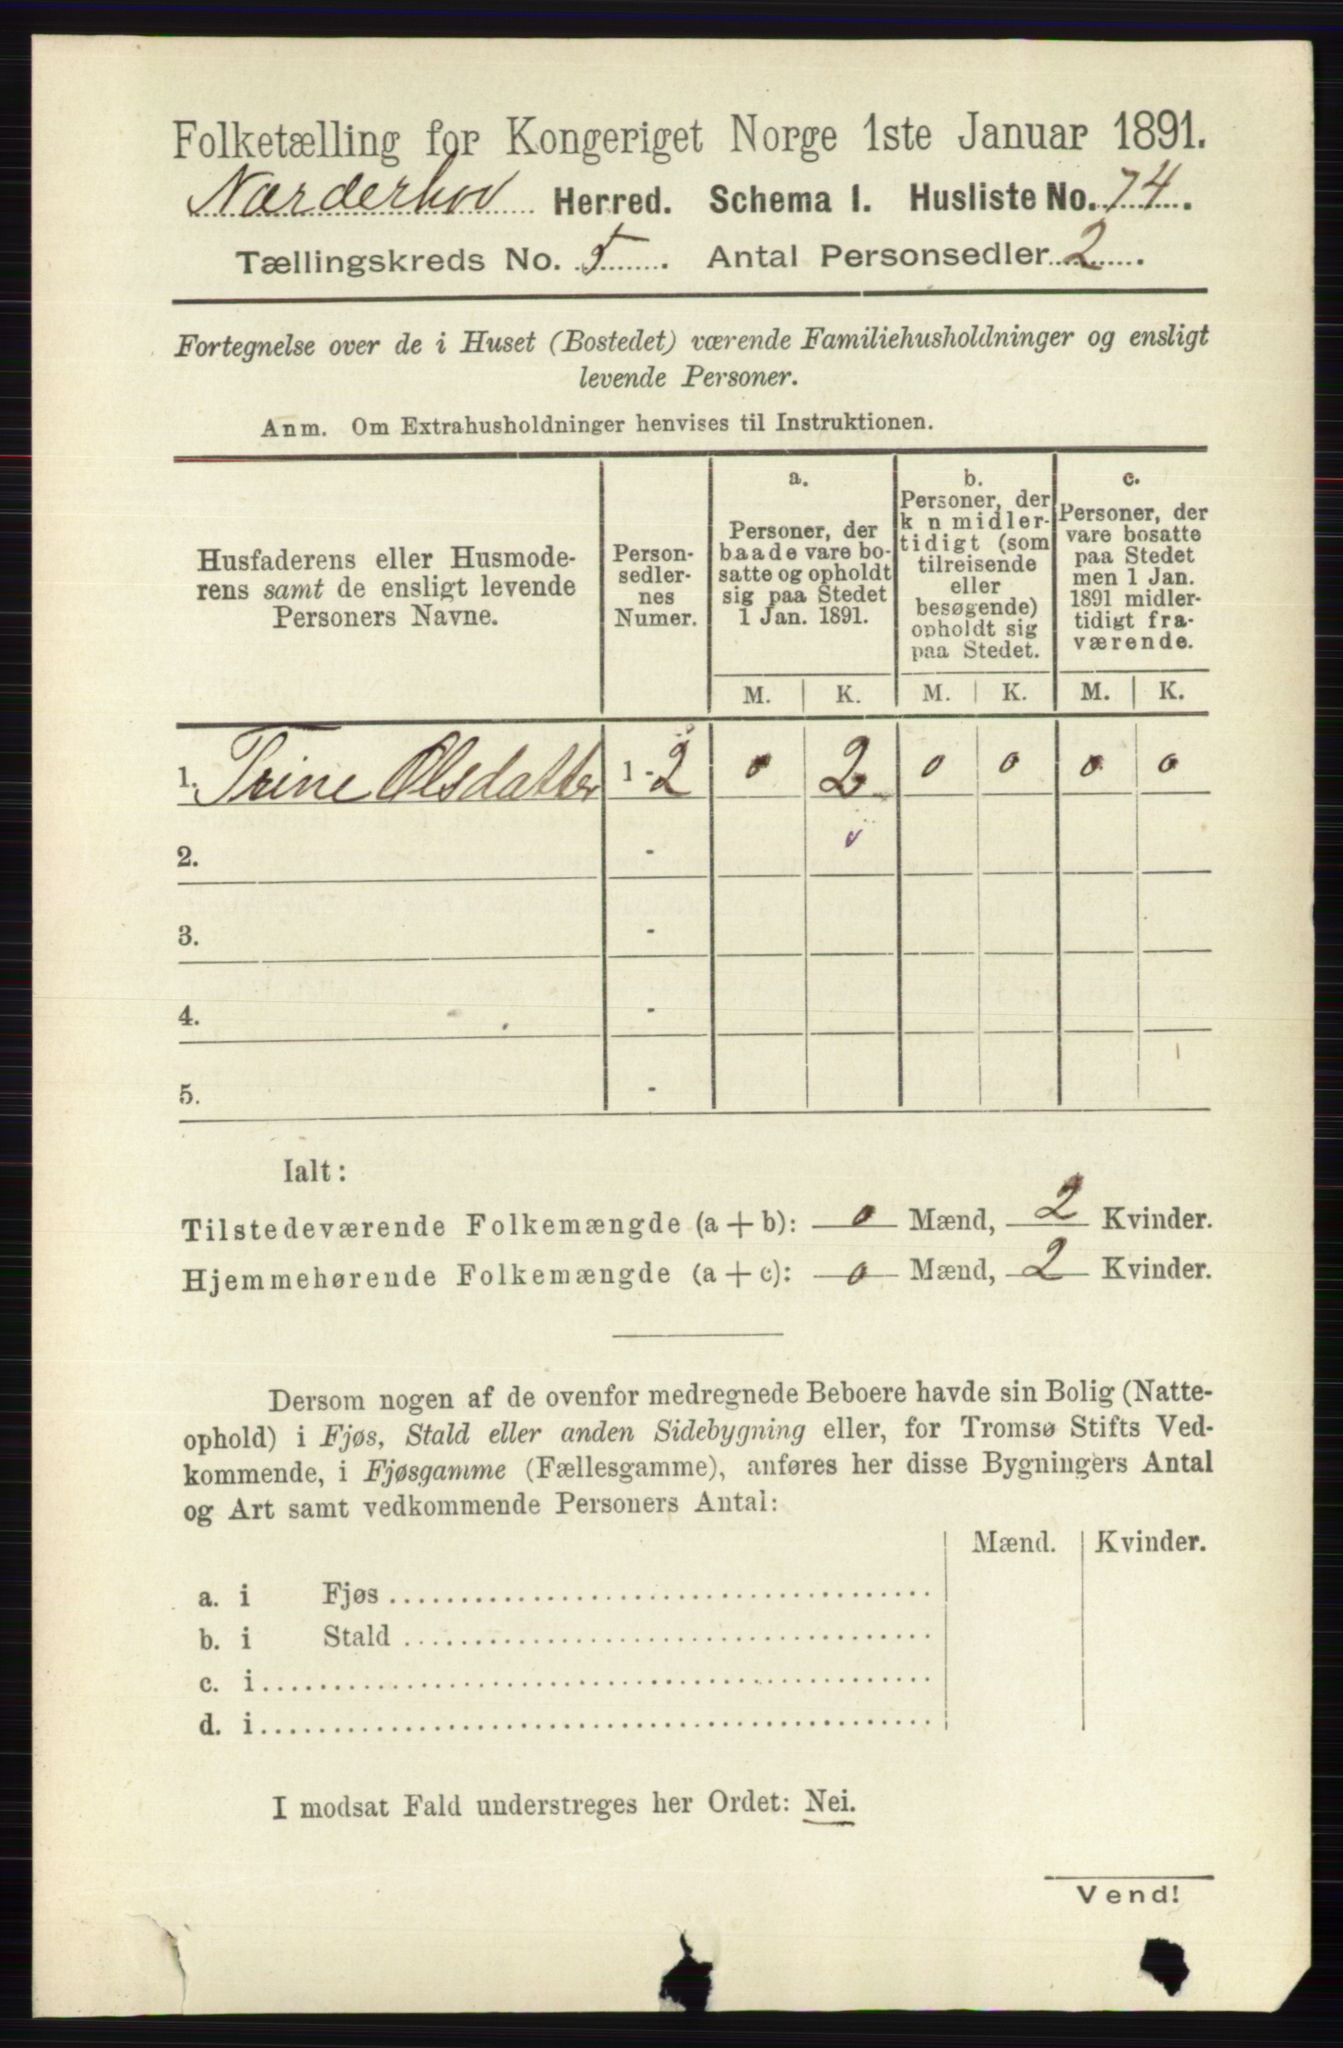 Folketælling for Kongeriget Norge 1ste Januar 1891.
Nærderhov Herred. Schema I. Husliste No. 74.
Tællingskreds No. 5. Antal Personsedler 2.
Fortegnelse over de i Huset (Bostedet) værende Familiehusholdninger og ensligt
levende Personer.
Anm. Om Extrahusholdninger henvises til Instruktionen.
Husfaderens eller Husmode-
rens samt de ensligt levende
Personers Navne.
Person-
sedler-
nes
Numer.
a.
Personer, der
baade vare bo-
satte og opholdt
sig paa Stedet
1 Jan. 1891.
b.
Personer, der
k n midler-
tidigt (som
tilreisende
eller
besøgende)
opholdt sig
paa Stedet.
c.
Personer, der
vare bosatte
paa Stedet
men 1 Jan.
1891 midler-
tidigt fra-
værende.
M. K. M. K. M. K.
1. Trine Olsdatter 1-2 0 2 0 0 0 0
2. -
3. -
4. -
5. -
Ialt:
Tilstedeværende Folkemængde (a+b): 0 Mænd, 2 Kvinder.
Hjemmehørende Folkemængde (a+c): 0 Mænd, 2 Kvinder.
Dersom nogen af de ovenfor medregnede Beboere havde sin Bolig (Natte-
ophold) i Fjøs, Stald eller anden Sidebygning eller, for Tromsø Stifts Ved-
kommende, i Fjøsgamme (Fællesgamme), anføres her disse Bygningers Antal
og Art samt vedkommende Personers Antal:
Mænd. Kvinder.
a. i Fjøs
b. i Stald
c. i
d. i
I modsat Fald understreges her Ordet: Nei.
Vend!